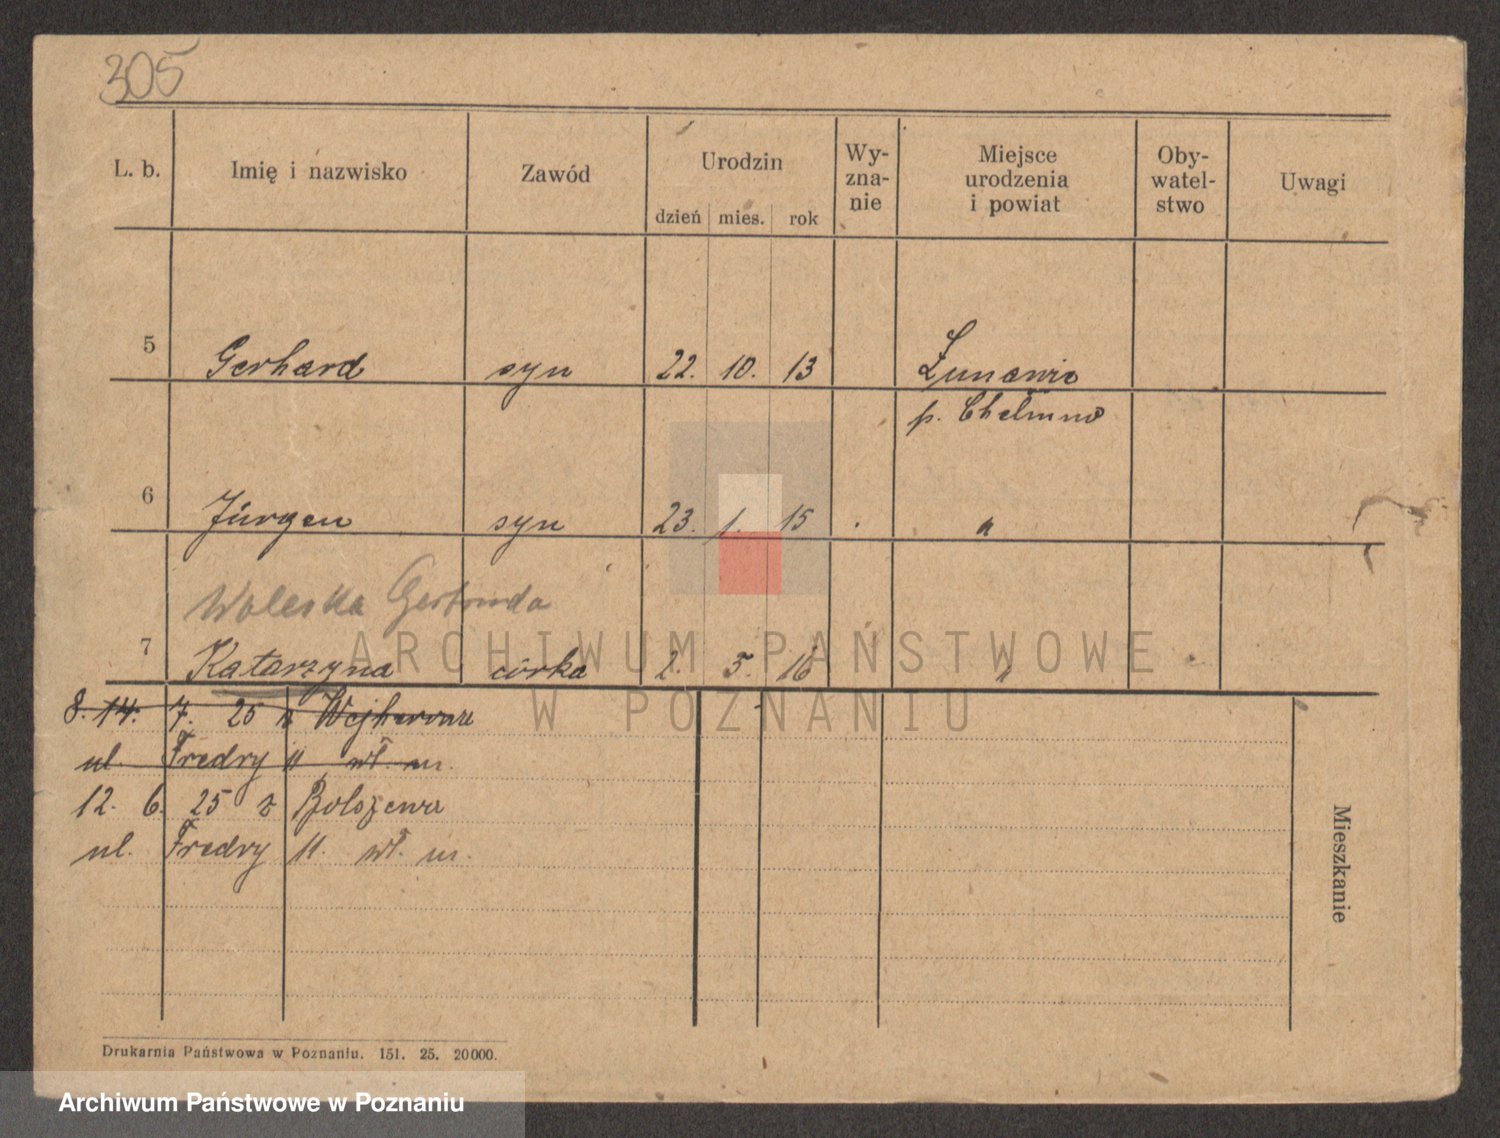 305
L. b. Imię i nazwisko Zawód Urodzin Wy-zna-nie Miejsce urodzenia i powiat Oby-watel-stwo Uwagi
dzień mies. rok
5 Gerhard syn 22. 10. 13
p. Chełmno
6 Jürgen syn 23. 1. 15 "
Waleska Gertruda
7 Katarzyna córka 2. 5. 16 "
8. 14. 7. 25 z
ul. Fredry 11 wł. m.
12. 6. 25 z Bolszewa
ul. Fredry 11. wł. m.
Mieszkanie
ARCHIWUM PAŃSTWOWE
W POZNANIU
Drukarnia Państwowa w Poznaniu. 151. 25. 20000.
Archiwum Państwowe w Poznaniu